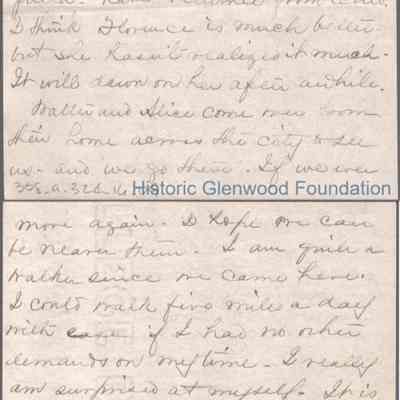 I think Florence is much better
but she hasn't realized it much -
It will dawn on her after awhile.
Walter and Alice come over from
their home across the city to see
us - and we go there. If we ever
Historic Glenwood Foundation
more again - I hope we can
be nearer them. I am quite a
walker since we came here.
I could walk five mile a day
with ease if I had no other
demands on my time - I really
am surprised at myself. It is